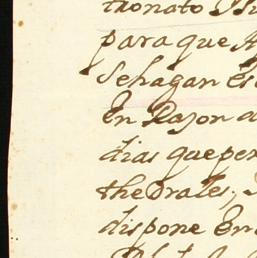 tronato
para que
Sehagan es
En Rason d
dias que per
thedrales,
dispone En